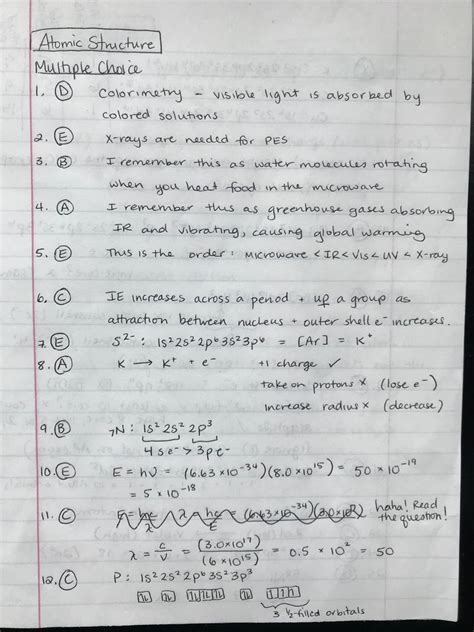 Atomic Structure
Multiple Choice
1. (D) Colorimetry - visible light is absorbed by
colored solutions
2. (E) X-rays are needed for PES
3. (B) I remember this as water molecules rotating
when you heat food in the microwave
4. (A) I remember this as greenhouse gases absorbing
IR and vibrating, causing global warming
5. (E) This is the order: Microwave < IR < Vis < UV < X-ray
6. (C) IE increases across a period + up a group as
attraction between nucleus + outer shell e⁻ increases.
7. (E) S²⁻: 1s²2s²2p⁶3s²3p⁶ = [Ar] = K⁺
8. (A) K → K⁺ + e⁻ +1 charge ✓
take on protons × (lose e⁻)
increase radius × (decrease)
9. (B) ₇N: 1s²2s²2p³
4 s e⁻ > 3 p e⁻
10. (E) E = hν = (6.63 × 10⁻³⁴)(8.0 × 10¹⁵) = 50 × 10⁻¹⁹
= 5 × 10⁻¹⁸
11. (C) haha! Read
the question!
λ = c/ν = (3.0×10¹⁷)/(6 × 10¹⁵) = 0.5 × 10² = 50
12. (C) P: 1s²2s²2p⁶3s²3p³
3 ½-filled orbitals